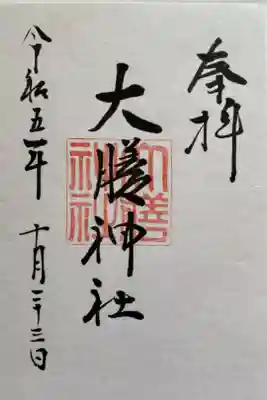 奉拝
大膳神社
大膳
神社
令和五年 十月二十三日